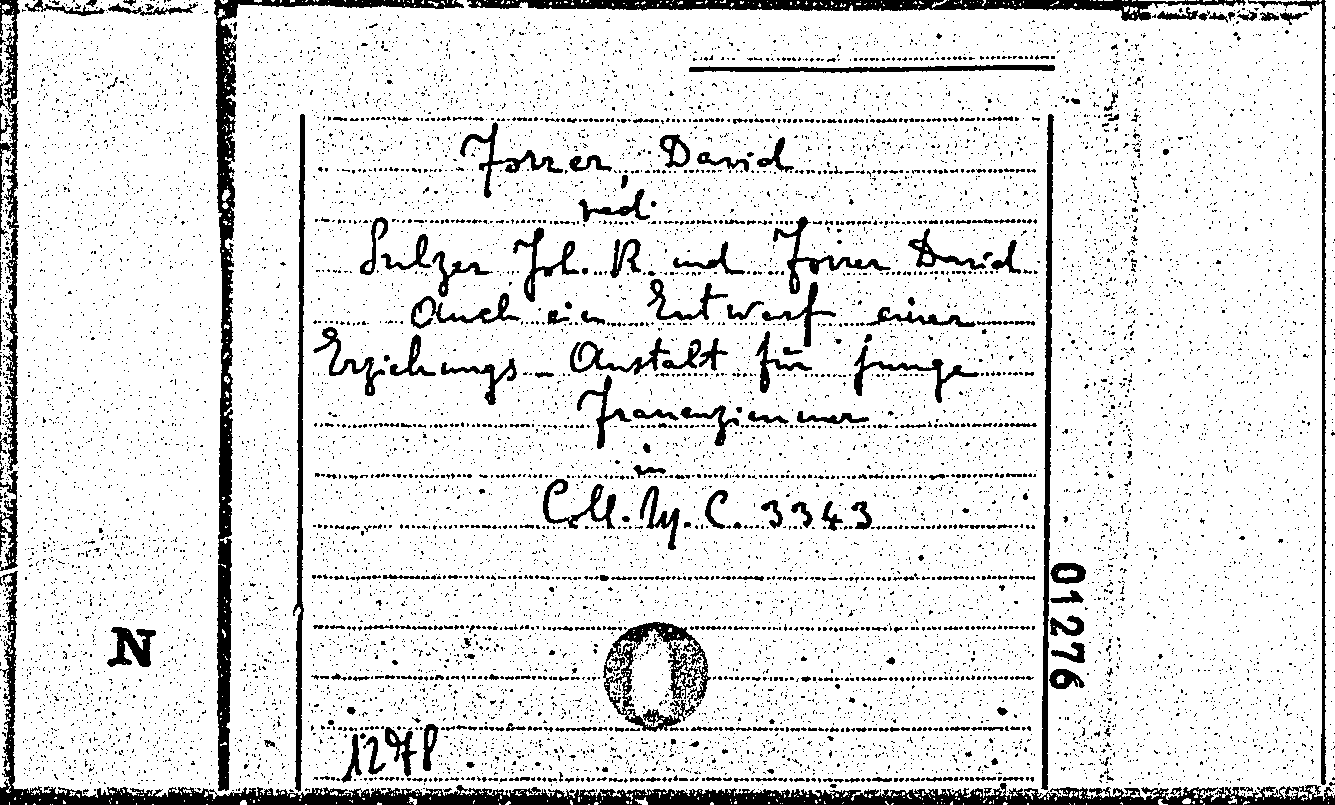 Forrer, David
red.
Sulzer Joh. R. und Forrer David
Auch ein Entwurf einer
Erziehungs-Anstalt für junge
Frauenzimmer
in
Coll. Up. C. 3343
01276
N